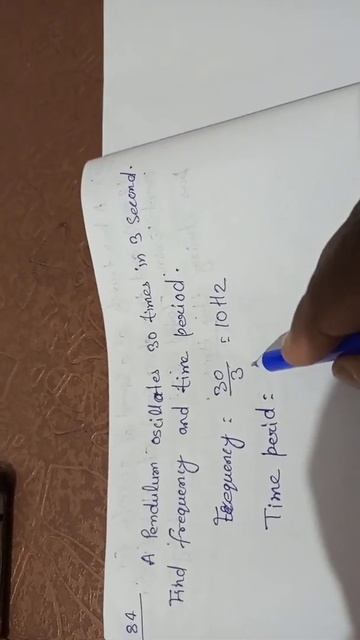 84
A Pendulum oscillates 30 times in 3 second.
Find frequency and time period.
Frequency = 30/3 = 10Hz
Time perid =